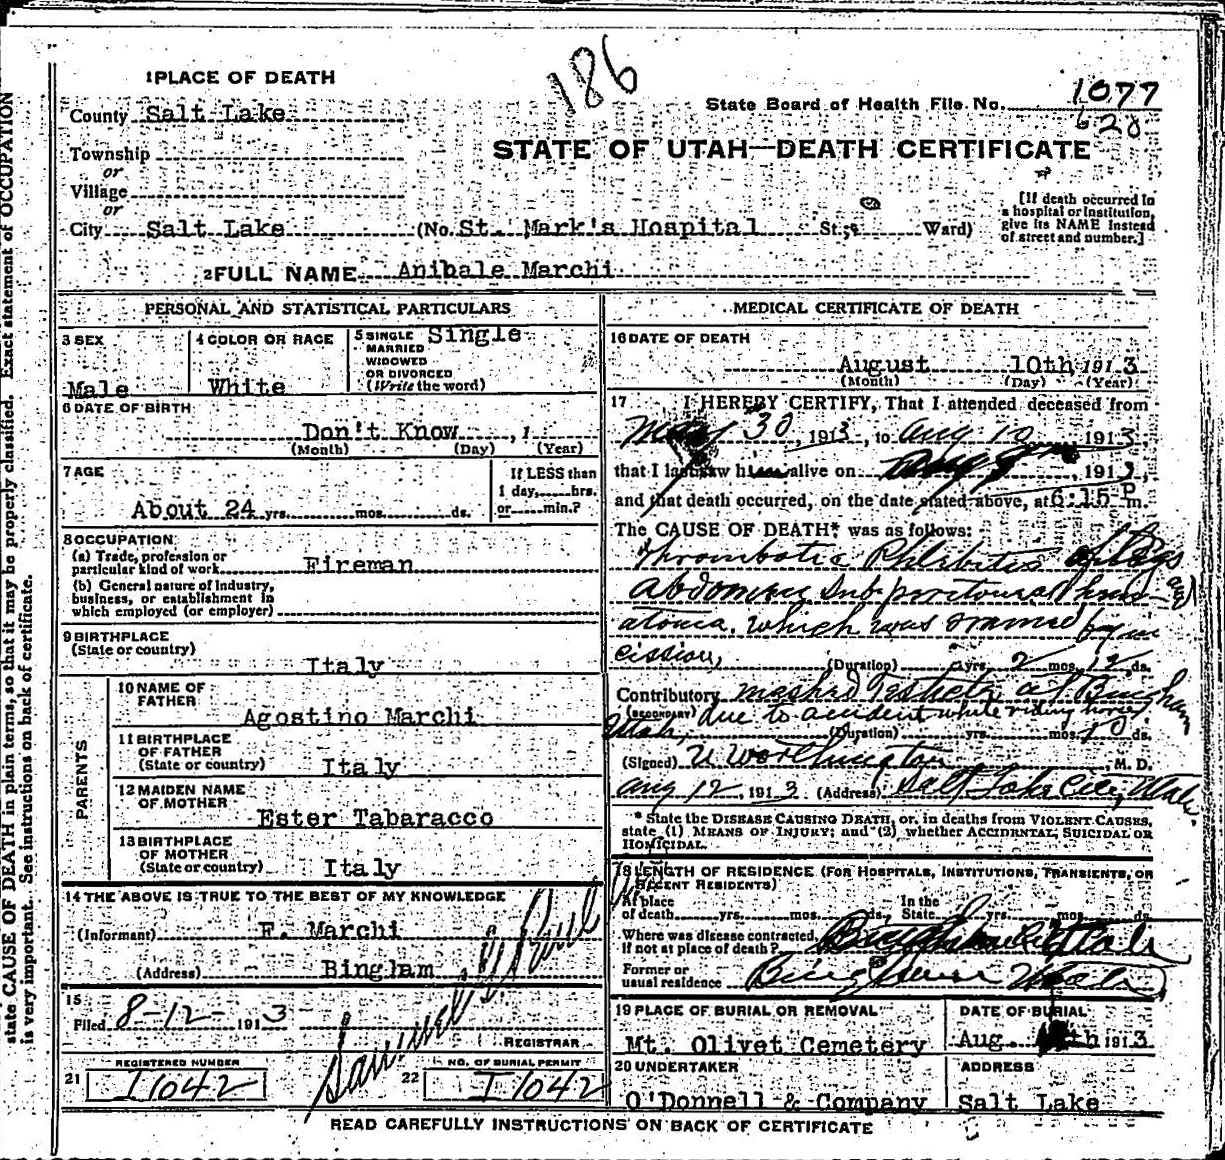 186
1 PLACE OF DEATH
State Board of Health File No. 1077
620
County Salt Lake
STATE OF UTAH—DEATH CERTIFICATE
Township
or
Village
or
[If death occurred in a hospital or institution, give its NAME instead of street and number.]
City Salt Lake (No. St. Mark's Hospital St.; Ward)
2 FULL NAME Anibale Marchi
PERSONAL AND STATISTICAL PARTICULARS
3 SEX
Male
4 COLOR OR RACE
White
5 SINGLE
MARRIED
WIDOWED
OR DIVORCED
(Write the word)
Single
6 DATE OF BIRTH
Don't Know, 1
(Month) (Day) (Year)
7 AGE
About 24 yrs. mos. ds.
If LESS than
1 day, hrs.
or min.?
8 OCCUPATION
(a) Trade, profession or
particular kind of work Fireman
(b) General nature of industry,
business, or establishment in
which employed (or employer)
9 BIRTHPLACE
(State or country)
Italy
PARENTS
10 NAME OF
FATHER
Agostino Marchi
11 BIRTHPLACE
OF FATHER
(State or country) Italy
12 MAIDEN NAME
OF MOTHER
Ester Tabaracco
13 BIRTHPLACE
OF MOTHER
(State or country) Italy
14 THE ABOVE IS TRUE TO THE BEST OF MY KNOWLEDGE
(Informant) F. Marchi
(Address) Bingham
15
Filed 8-12- 1913
Samuel G. Paul
REGISTRAR
REGISTERED NUMBER
21 I1042
NO. OF BURIAL PERMIT
22 I1042
MEDICAL CERTIFICATE OF DEATH
16 DATE OF DEATH
August 10th 1913
(Month) (Day) (Year)
17 I HEREBY CERTIFY, That I attended deceased from
May 30, 1913, to Aug 10 1913,
that I last saw him alive on Aug 1913,
and that death occurred, on the date stated above, at 6:15 P m.
The CAUSE OF DEATH* was as follows:
Thrombotic Phlebitis of legs
abdomen
atoma, which was drained by in
cission, (Duration) yrs. 2 mos. 12 ds.
Contributory mashed Testicle at Bingham
(SECONDARY) due to accident while riding horse
Utah, (Duration) yrs. mos. 10 ds.
(Signed) U Worthington, M. D.
Aug 12, 1913 (Address) Salt Lake City, Utah
* State the DISEASE CAUSING DEATH, or, in deaths from VIOLENT CAUSES,
state (1) MEANS OF INJURY; and (2) whether ACCIDENTAL, SUICIDAL OR
HOMICIDAL.
18 LENGTH OF RESIDENCE (FOR HOSPITALS, INSTITUTIONS, TRANSIENTS, OR
RECENT RESIDENTS)
At place
of death yrs. mos. ds.
In the
State yrs. mos. ds.
Where was disease contracted,
if not at place of death? Bingham Utah
Former or
usual residence Bingham Utah
19 PLACE OF BURIAL OR REMOVAL
Mt. Olivet Cemetery
DATE OF BURIAL
Aug. th 1913
20 UNDERTAKER
O'Donnell & Company
ADDRESS
Salt Lake
READ CAREFULLY INSTRUCTIONS ON BACK OF CERTIFICATE
state CAUSE OF DEATH in plain terms, so that it may be properly classified. Exact statement of OCCUPATION
is very important. See instructions on back of certificate.